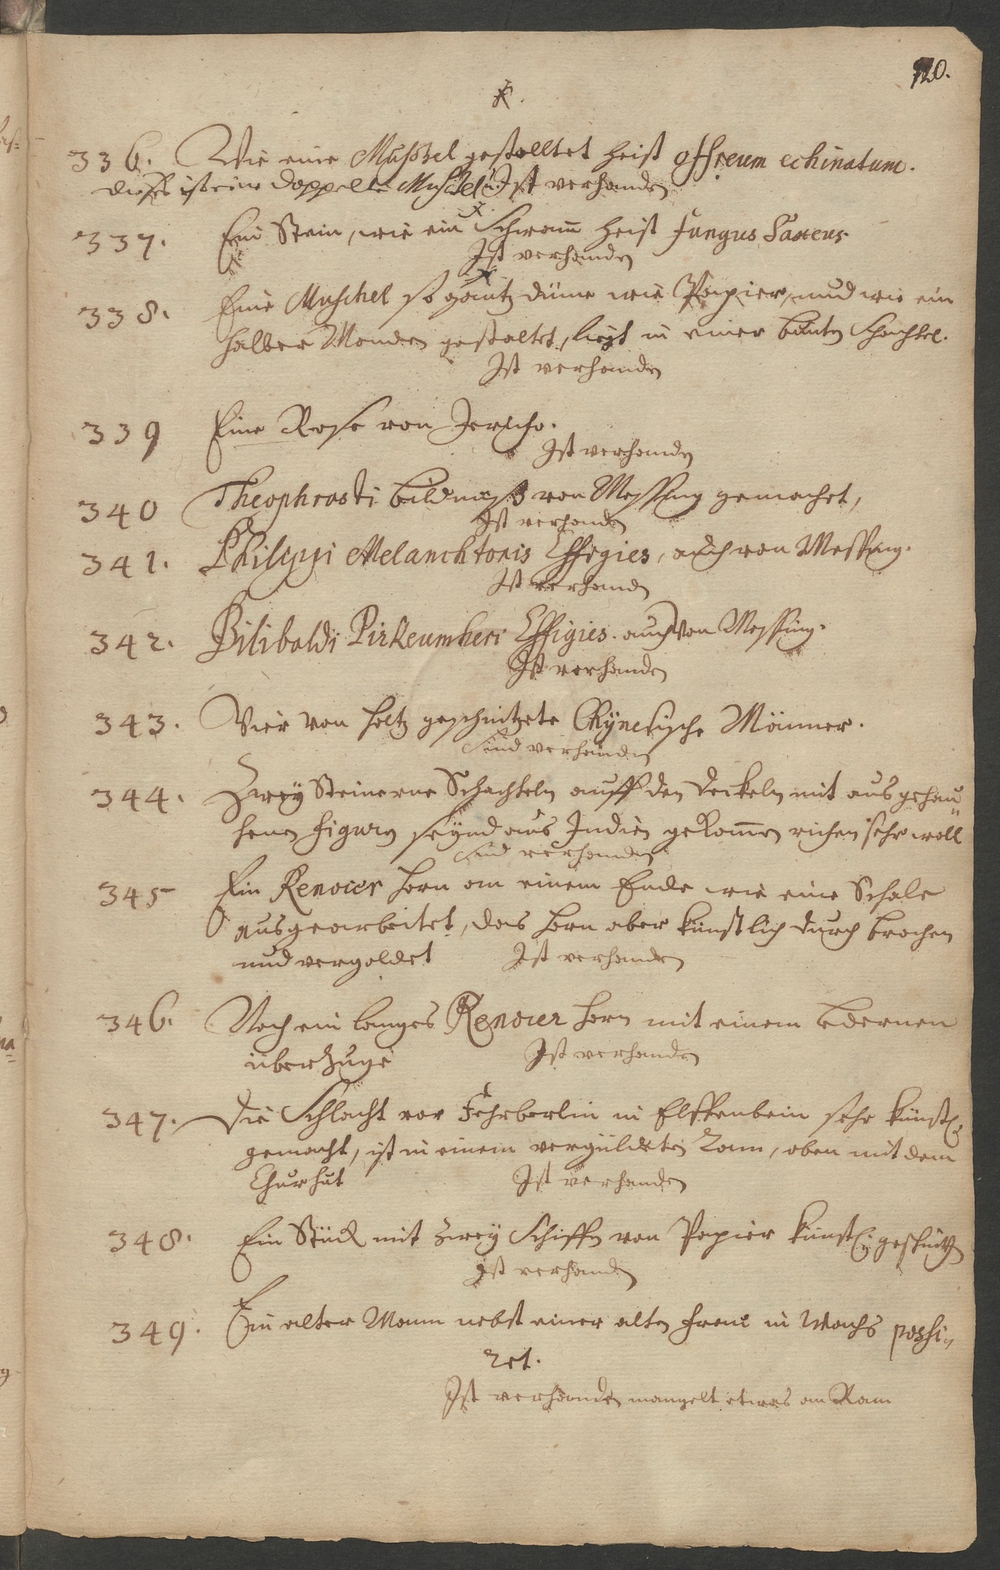 120.
336. Wie eine Mußzel gestalltet heist Ostreum echinatum.
Diese ist eine doppelte Muschel Ist verhanden
337. Ein Stein, wie ein Schwam̄ heist Fungus Saxeus
Ist verhanden
338. Eine Muschel so gantz dünne wie Papier, und wie ein
halber Monden gestaltet, liegt in einer bunten Schachtel.
Ist verhanden
339 Eine Rose von Jericho.
Ist verhanden
340 Theophrasti bildnuß von Messing gemachet,
Ist verhanden
341. Philippi Melanchtonis Effigies, auch von Messing.
Ist verhanden
342. Bilibaldi Pirkeumheri Effigies. auch von Messing.
Ist verhanden
343. Vier von holtz geschnitzete Chynesische Männer.
Sind verhanden
344. Zwey Steinerne Schachteln auff den Deckeln mit ausgehau„
henen figuren seynd aus Indien gekom̄en richen sehr woll
Sind verhanden
345 Ein Renocer horn am einem Ende wie eine Schale
ausgearbeitet, das horn aber künstlich durch brochen
und vergoldet Ist verhanden
346. Noch ein langes Renocer horn mit einem ledernen
überzuge Ist verhanden
347. Die Schlacht vor Fehrberlin in Elffenbein sehr künstl:
gemacht, ist in einem vergüldeten Ram, oben mit dem
Churhut Ist verhanden
348. Ein Stück mit zwey Schiffen von Papier künstl: geschnitzt
Ist verhanden
349. Ein alter Mann nebst einer alten frau in Wachs poszi„
ret.
Ist verhanden mangelt etwas am Ram